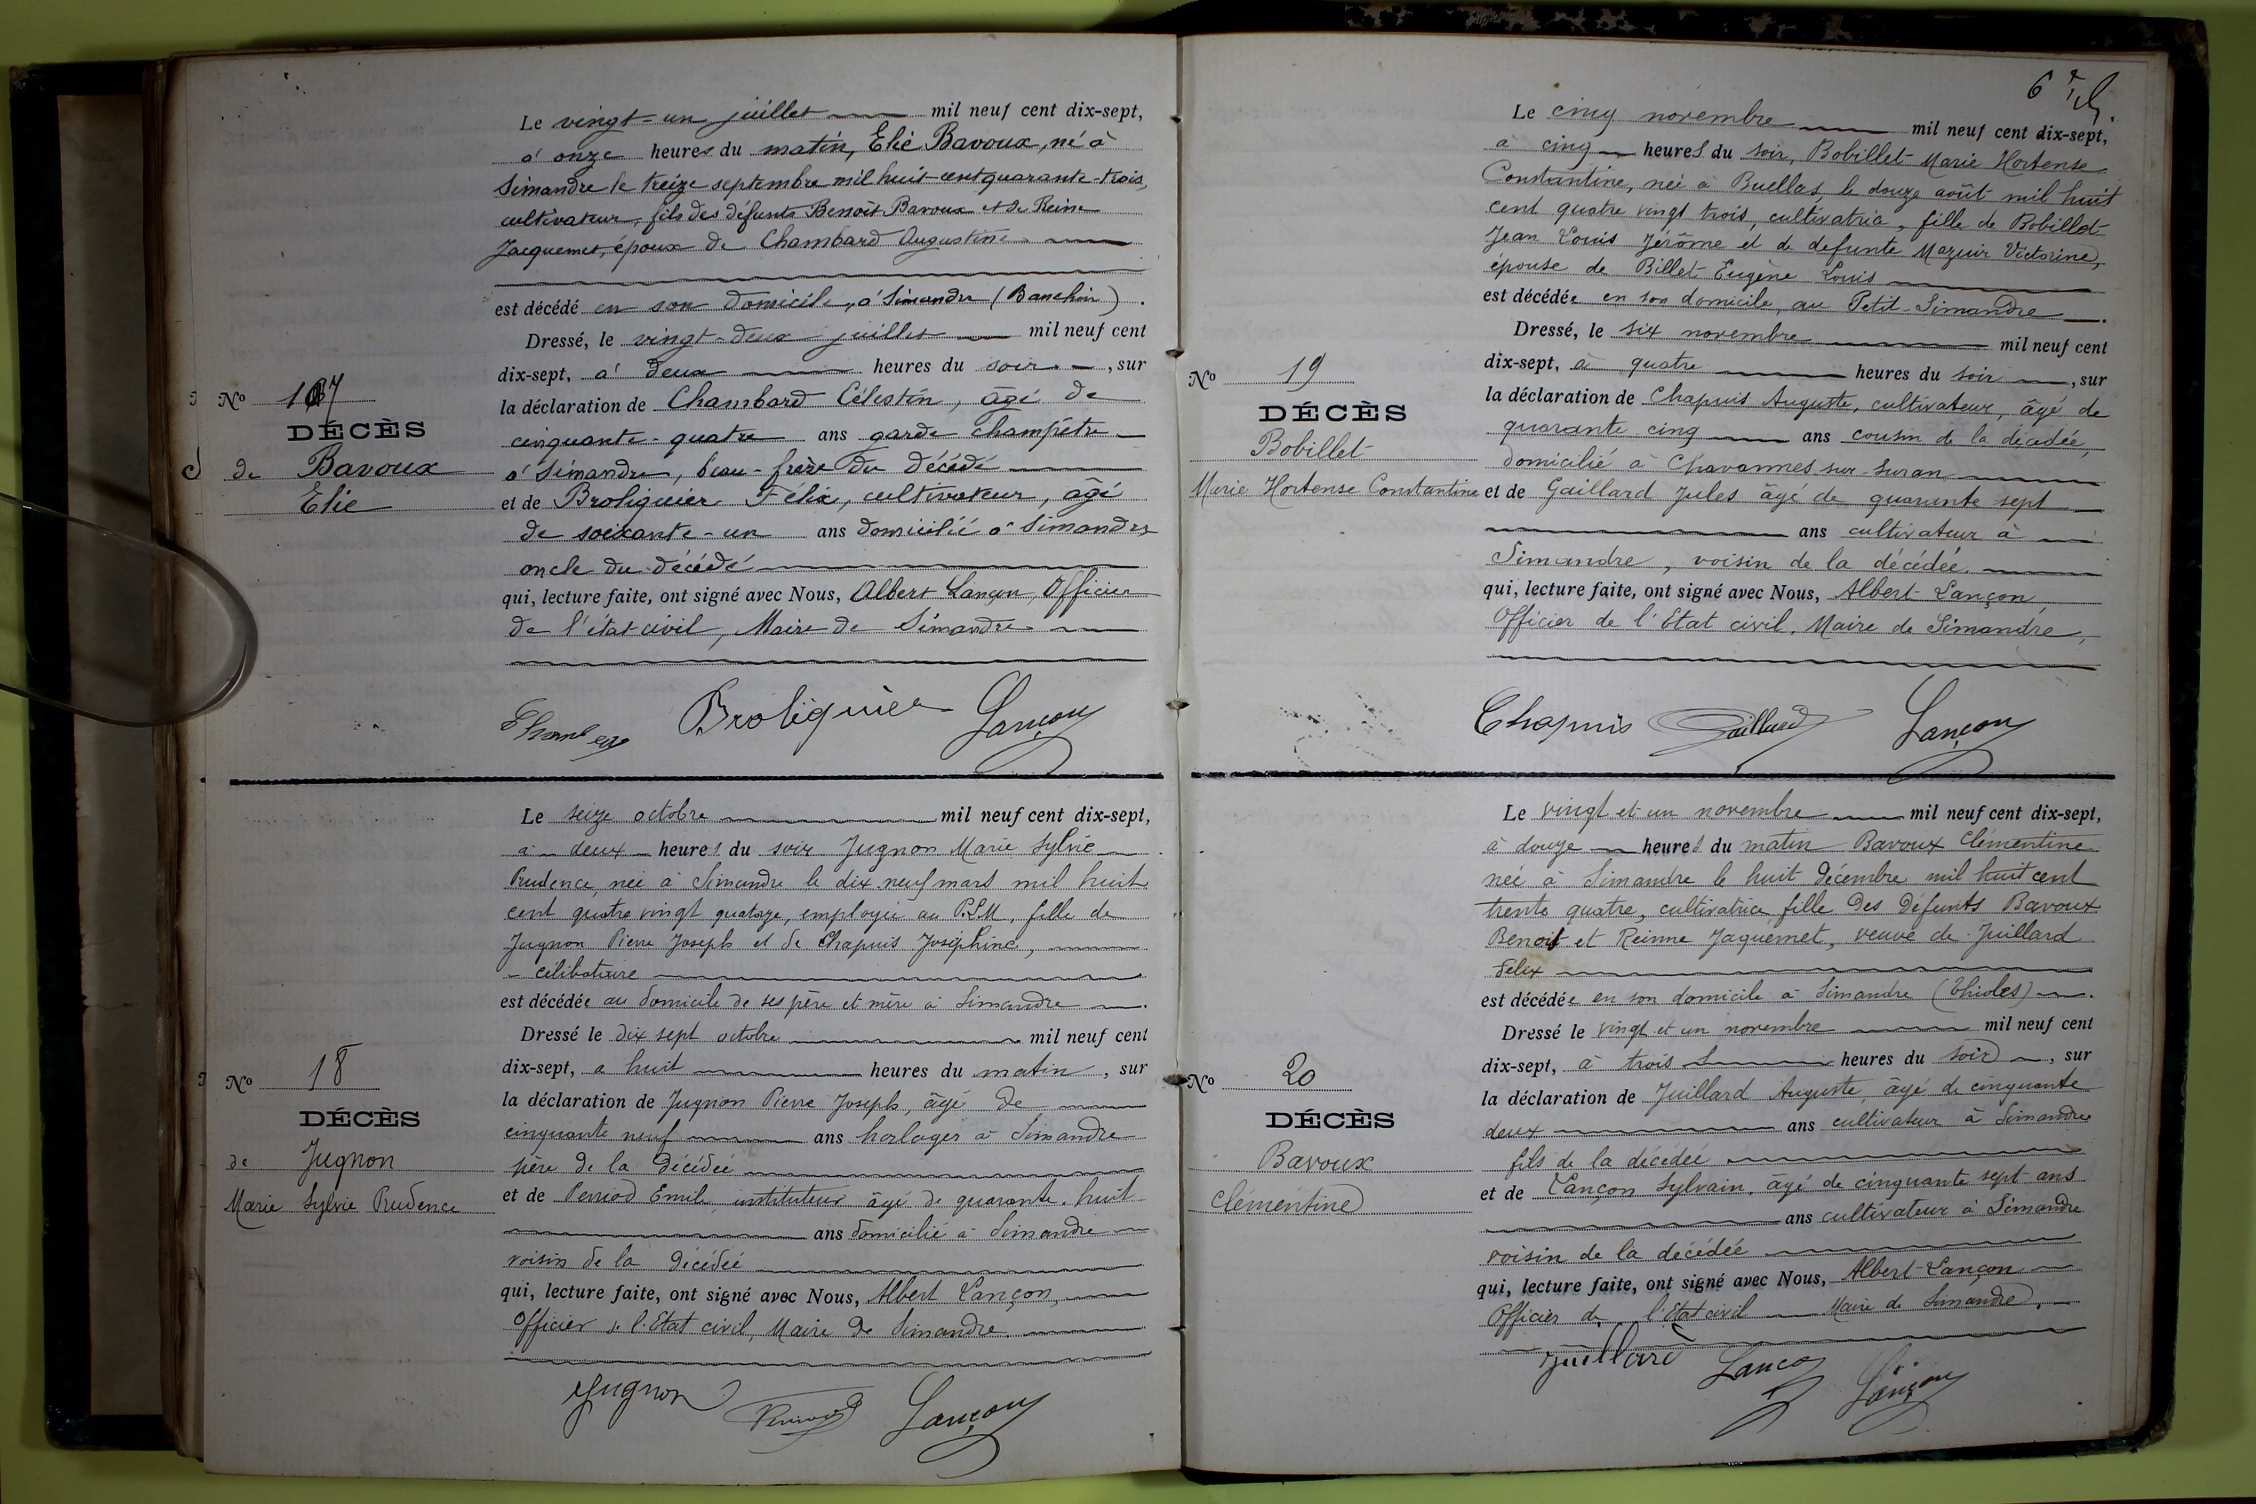 Le vingt-un juillet mil neuf cent dix-sept,
à onze heures du matin, Elie Bavoux, né à
Simandre le treize septembre mil huit cent quarante-trois,
cultivateur, fils des défunts Benoît Bavoux et de Reine
Jacquemet, époux de Chambard Augustine
est décédé en son domicile, à Simandre (Banchin).
Dressé, le vingt-deux juillet mil neuf cent
dix-sept, à deux heures du soir, sur
la déclaration de Chambard Célestin, âgé de
cinquante-quatre ans garde champêtre
à Simandre, beau-frère du décédé
et de Broliquier Félix, cultivateur, âgé
de soixante-un ans domicilié à Simandre
oncle du décédé
qui, lecture faite, ont signé avec Nous, Albert Lançon, Officier
de l'état civil, Maire de Simandre
No 17
DÉCÈS
de Bavoux
Elie
Broliquier Lançon
Le seize octobre mil neuf cent dix-sept,
à deux heures du soir Jugnon Marie Sylvie
Prudence, née à Simandre le dix neuf mars mil huit
cent quatre vingt quatorze, employée au P.L.M, fille de
Jugnon Pierre Joseph et de Chapuis Joséphine,
célibataire
est décédée au domicile de ses père et mère à Simandre.
Dressé le dix sept octobre mil neuf cent
dix-sept, à huit heures du matin, sur
la déclaration de Jugnon Pierre Joseph, âgé de
cinquante neuf ans horloger à Simandre
père de la décédée
et de Perriod Emile instituteur âgé de quarante huit
ans domicilié à Simandre
voisin de la décédée
qui, lecture faite, ont signé avec Nous, Albert Lançon,
Officier de l'Etat civil, Maire de Simandre
No 18
DÉCÈS
de Jugnon
Marie Sylvie Prudence
Jugnon Perriod Lançon
Le cinq novembre mil neuf cent dix-sept,
à cinq heures du soir, Bobillet Marie Hortense
Constantine, née à Buellas le douze août mil huit
cent quatre vingt trois, cultivatrice, fille de Bobillet
Jean Louis Jérôme et de defunte Mazuir Victorine,
épouse de Billet Eugène Louis
est décédée en son domicile, au Petit-Simandre.
Dressé, le six novembre mil neuf cent
dix-sept, à quatre heures du soir, sur
la déclaration de Chapuis Auguste, cultivateur, âgé de
quarante cinq ans cousin de la décédée,
domicilié à Chavannes sur Suran
et de Gaillard Jules âgé de quarante sept
ans cultivateur à
Simandre, voisin de la décédée
qui, lecture faite, ont signé avec Nous, Albert Lançon,
Officier de l'Etat civil, Maire de Simandre,
No 19
DÉCÈS
Bobillet
Marie Hortense Constantine
Chapuis Gaillard Lançon
Le vingt et un novembre mil neuf cent dix-sept,
à douze heures du matin Bavoux Clémentine
née à Simandre le huit décembre mil huit cent
trente quatre, cultivatrice fille des défunts Bavoux
Benoit et Reinne Jaquemet, veuve de Juillard
Félix
est décédée en son domicile à Simandre (Thioles).
Dressé le vingt et un novembre mil neuf cent
dix-sept, à trois heures du soir, sur
la déclaration de Juillard Auguste, âgé de cinquante
deux ans cultivateur à Simandre
fils de la décédée
et de Lançon Sylvain, âgé de cinquante sept ans
ans cultivateur à Simandre
voisin de la décédée
qui, lecture faite, ont signé avec Nous, Albert Lançon
Officier de l'Etat civil Maire de Simandre.
No 20
DÉCÈS
Bavoux
Clémentine
Juillard Lançon Lançon